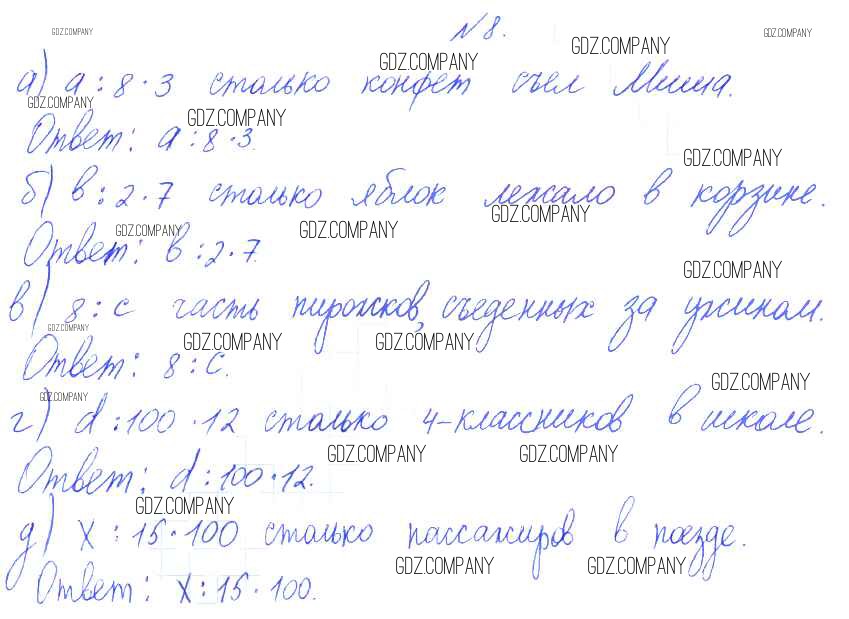 GDZ.COMPANY № 8. GDZ.COMPANY GDZ.COMPANY
GDZ.COMPANY
а) a : 8 · 3 столько конфет съел Миша.
GDZ.COMPANY GDZ.COMPANY
Ответ: a : 8 · 3.
GDZ.COMPANY
б) в : 2 · 7 столько яблок лежало в корзине.
GDZ.COMPANY GDZ.COMPANY GDZ.COMPANY
Ответ: в : 2 · 7.
GDZ.COMPANY
в) 8 : c часть пирожков, съеденных за ужином.
GDZ.COMPANY GDZ.COMPANY GDZ.COMPANY
Ответ: 8 : c.
GDZ.COMPANY GDZ.COMPANY
г) d : 100 · 12 столько 4-классников в школе.
GDZ.COMPANY GDZ.COMPANY
Ответ: d : 100 · 12.
GDZ.COMPANY
д) x : 15 · 100 столько пассажиров в поезде.
GDZ.COMPANY GDZ.COMPANY
Ответ: x : 15 · 100.